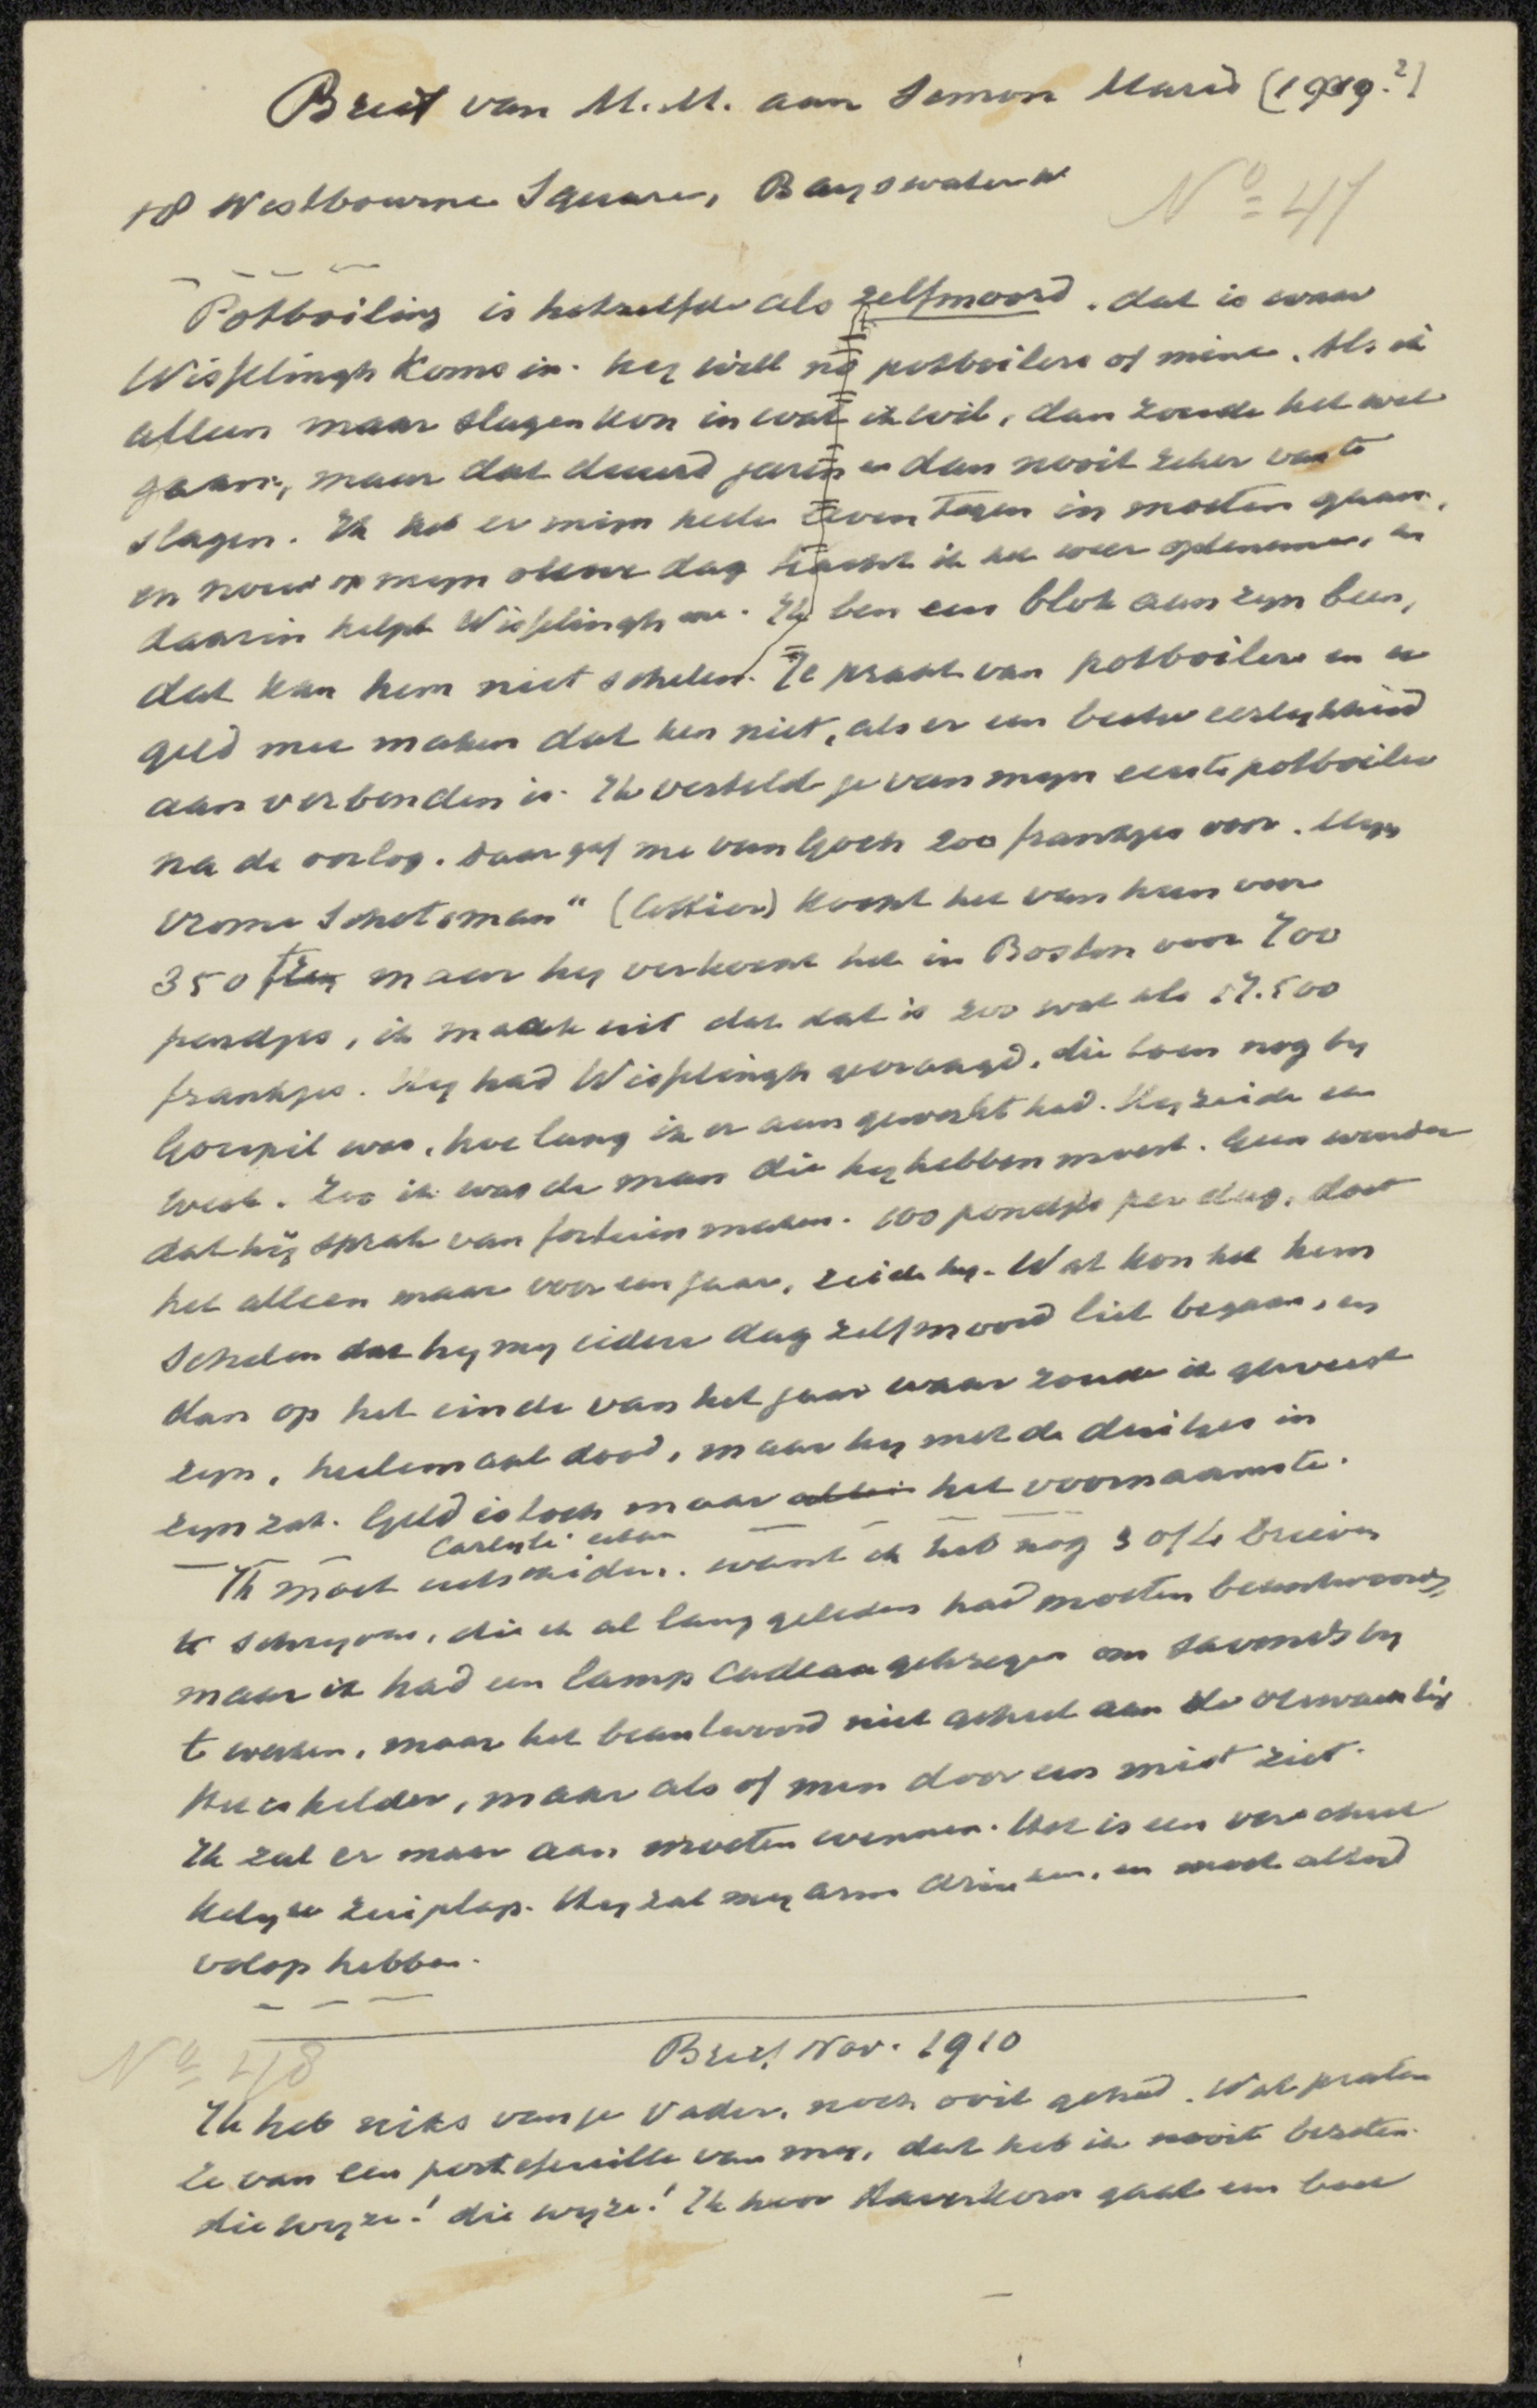 Brief van M.M. aan Simon Maris (1909?)
18 Westbourne Square, Bayswater W
No 47
Potboiling is hetzelfde als zelfmoord. dat is waar
Wisselingh koms in. hey will no potboilers of mine. Als ik
alleen maar slagen kon in wat ik wil, dan zoude het wel
gaan, maar dat duurd jaren en dan nooit zeker van te
slagen. Ik heb er mijn heele leven tegen in moeten gaan,
en nouw op myn ouwe dag tracht ik het weer optenemen, en
daarin helpt Wisselingh me. Ik ben een blok aan zyn been,
dat kan hem niet schelen. Je praat van potboilers en er
geld mee maken dat ken niet, als er een beetje eerlykheid
aan verbonden is. Ik vertelde je van myn eerste potboiler
na de oorlog. daar gaf me van Goch 200 frankjes voor. Myn
vrome Schotsman" (Cottier) koopt het van hun voor
350 maar hy verkoopt het in Boston voor 700
pondjes, ik maak uit dat dat is zoo wat als 17.500
frankjes. Hy had Wisselingh gevraagd, die toen nog by
Goupil was, hoe lang ik er aan gewerkt had. Hy zeide een
week. Zoo ik was de man die hy hebben moest. Geen wonder
dat hij sprak van fortuin maken. 100 pondjes per dag, doet
het alleen maar voor een jaar, zeide hy. Wat kon het hem
schelen dat hy my iedere dag zelfmoord liet begaan, en
dan op het einde van het jaar waar zoude ik geweest
zyn, heelemaal dood, maar hy met de duitjes in
zyn zak. Geld is toch maar allein het voornaamste.
Ik moet uitscheiden. want ik heb nog 3 of 4 brieven
te schryven, die ik al lang geleden had moeten beantwoorden
maar ik had een lamp cadeau gekregen om savonds by
te werken, maar het beantwoord niet geheel aan de verwachting
Het is helder, maar als of men door een mist ziet.
Ik zal er maar aan moeten wennen. Het is een verschrik
kelyke zuiplap. Hy zal my arm drinken, en moet altyd
volop hebben.
No 48
Brief Nov. 1910
Ik heb niks van je Vader, noch ooit gehad. Wat praten
ze van een portefeuille van my, dat heb ik nooit bezeten.
die wyze! die wyze! Ik hoor Haverkorn gaat een boek